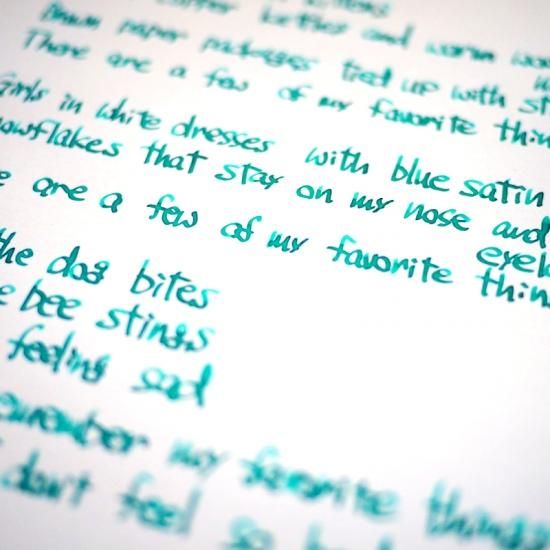 copper kettles and warm woo
Brown paper packages tied up with st
These are a few of my favorite thin
Girls in white dresses with blue satin
nowflakes that stay on my nose and
eyel
e are a few of my favorite thin
the dog bites
e bee stings
feeling sad
emember my favorite things
don't feel so bad